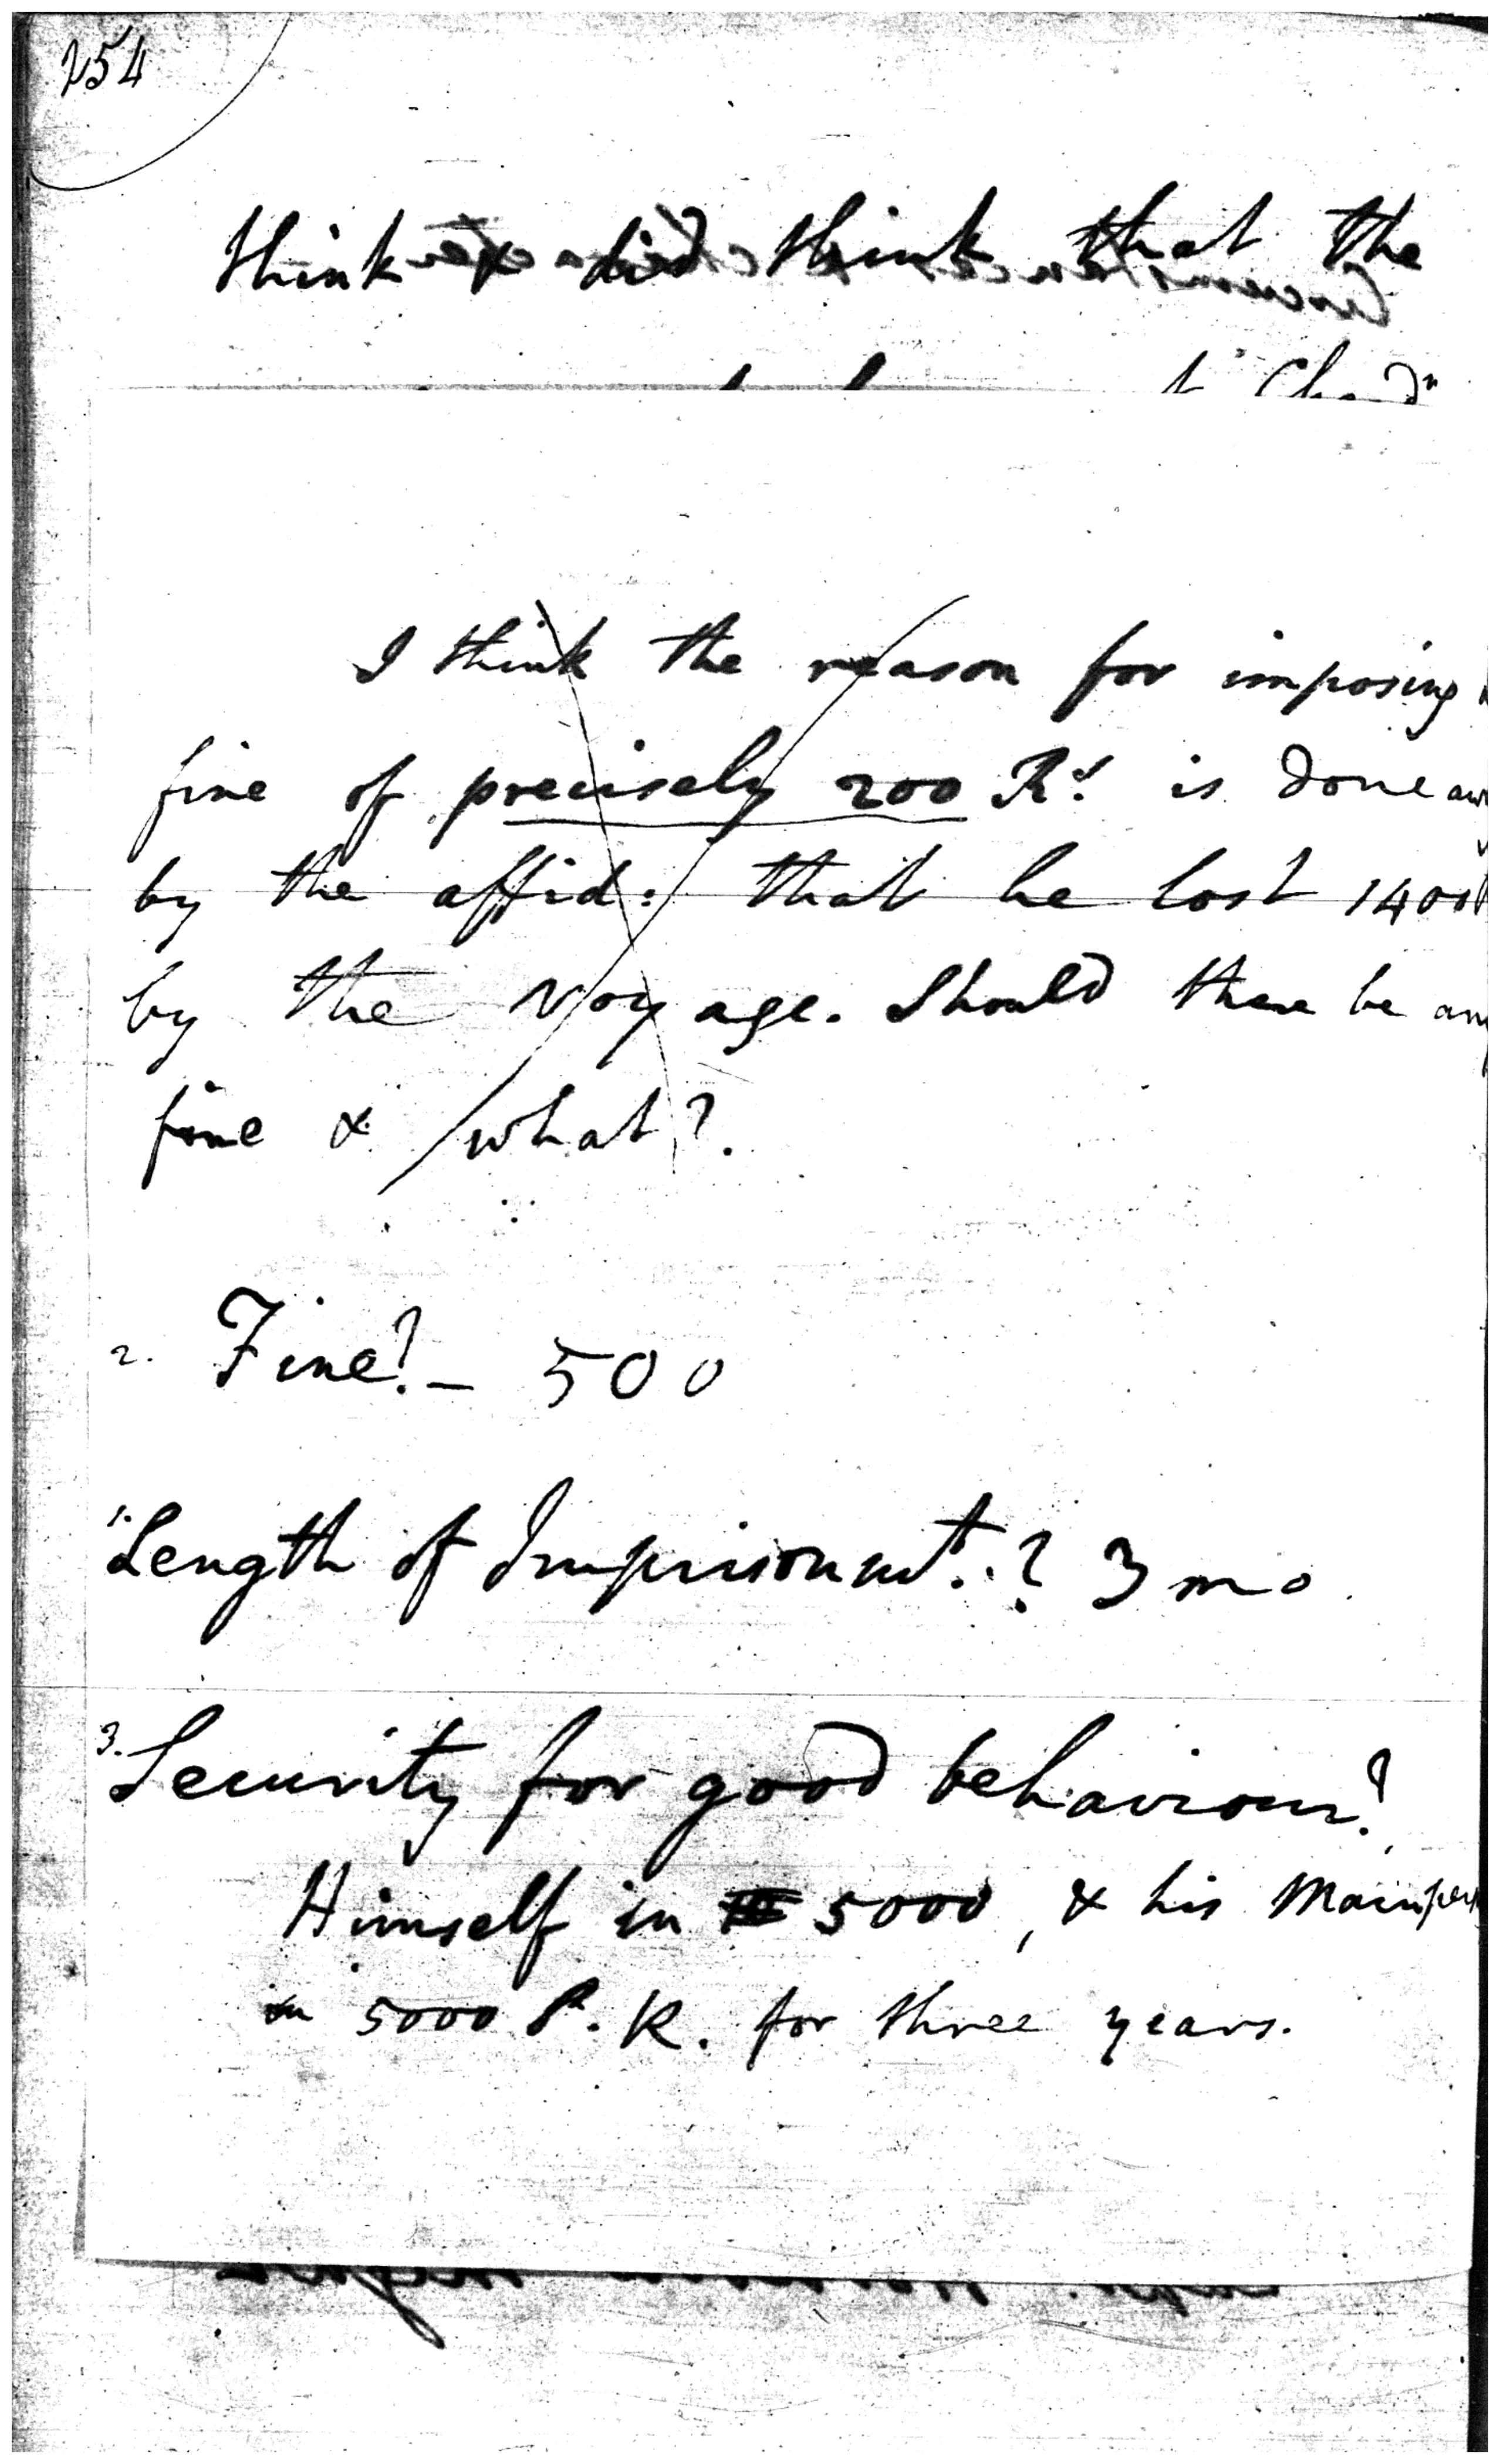 254
think & did think that the
I think the reason for imposing
fine of precisely 200 Rs. is done
by the affid: that he lost 1400
by the Voyage. Should there be any
fine & what?.
2. Fine? – 500
1. Length of Imprisonmt..? 3 mo.
3. Security for good behaviour?
Himself in 5000, & his
in 5000 S. R. for three years.